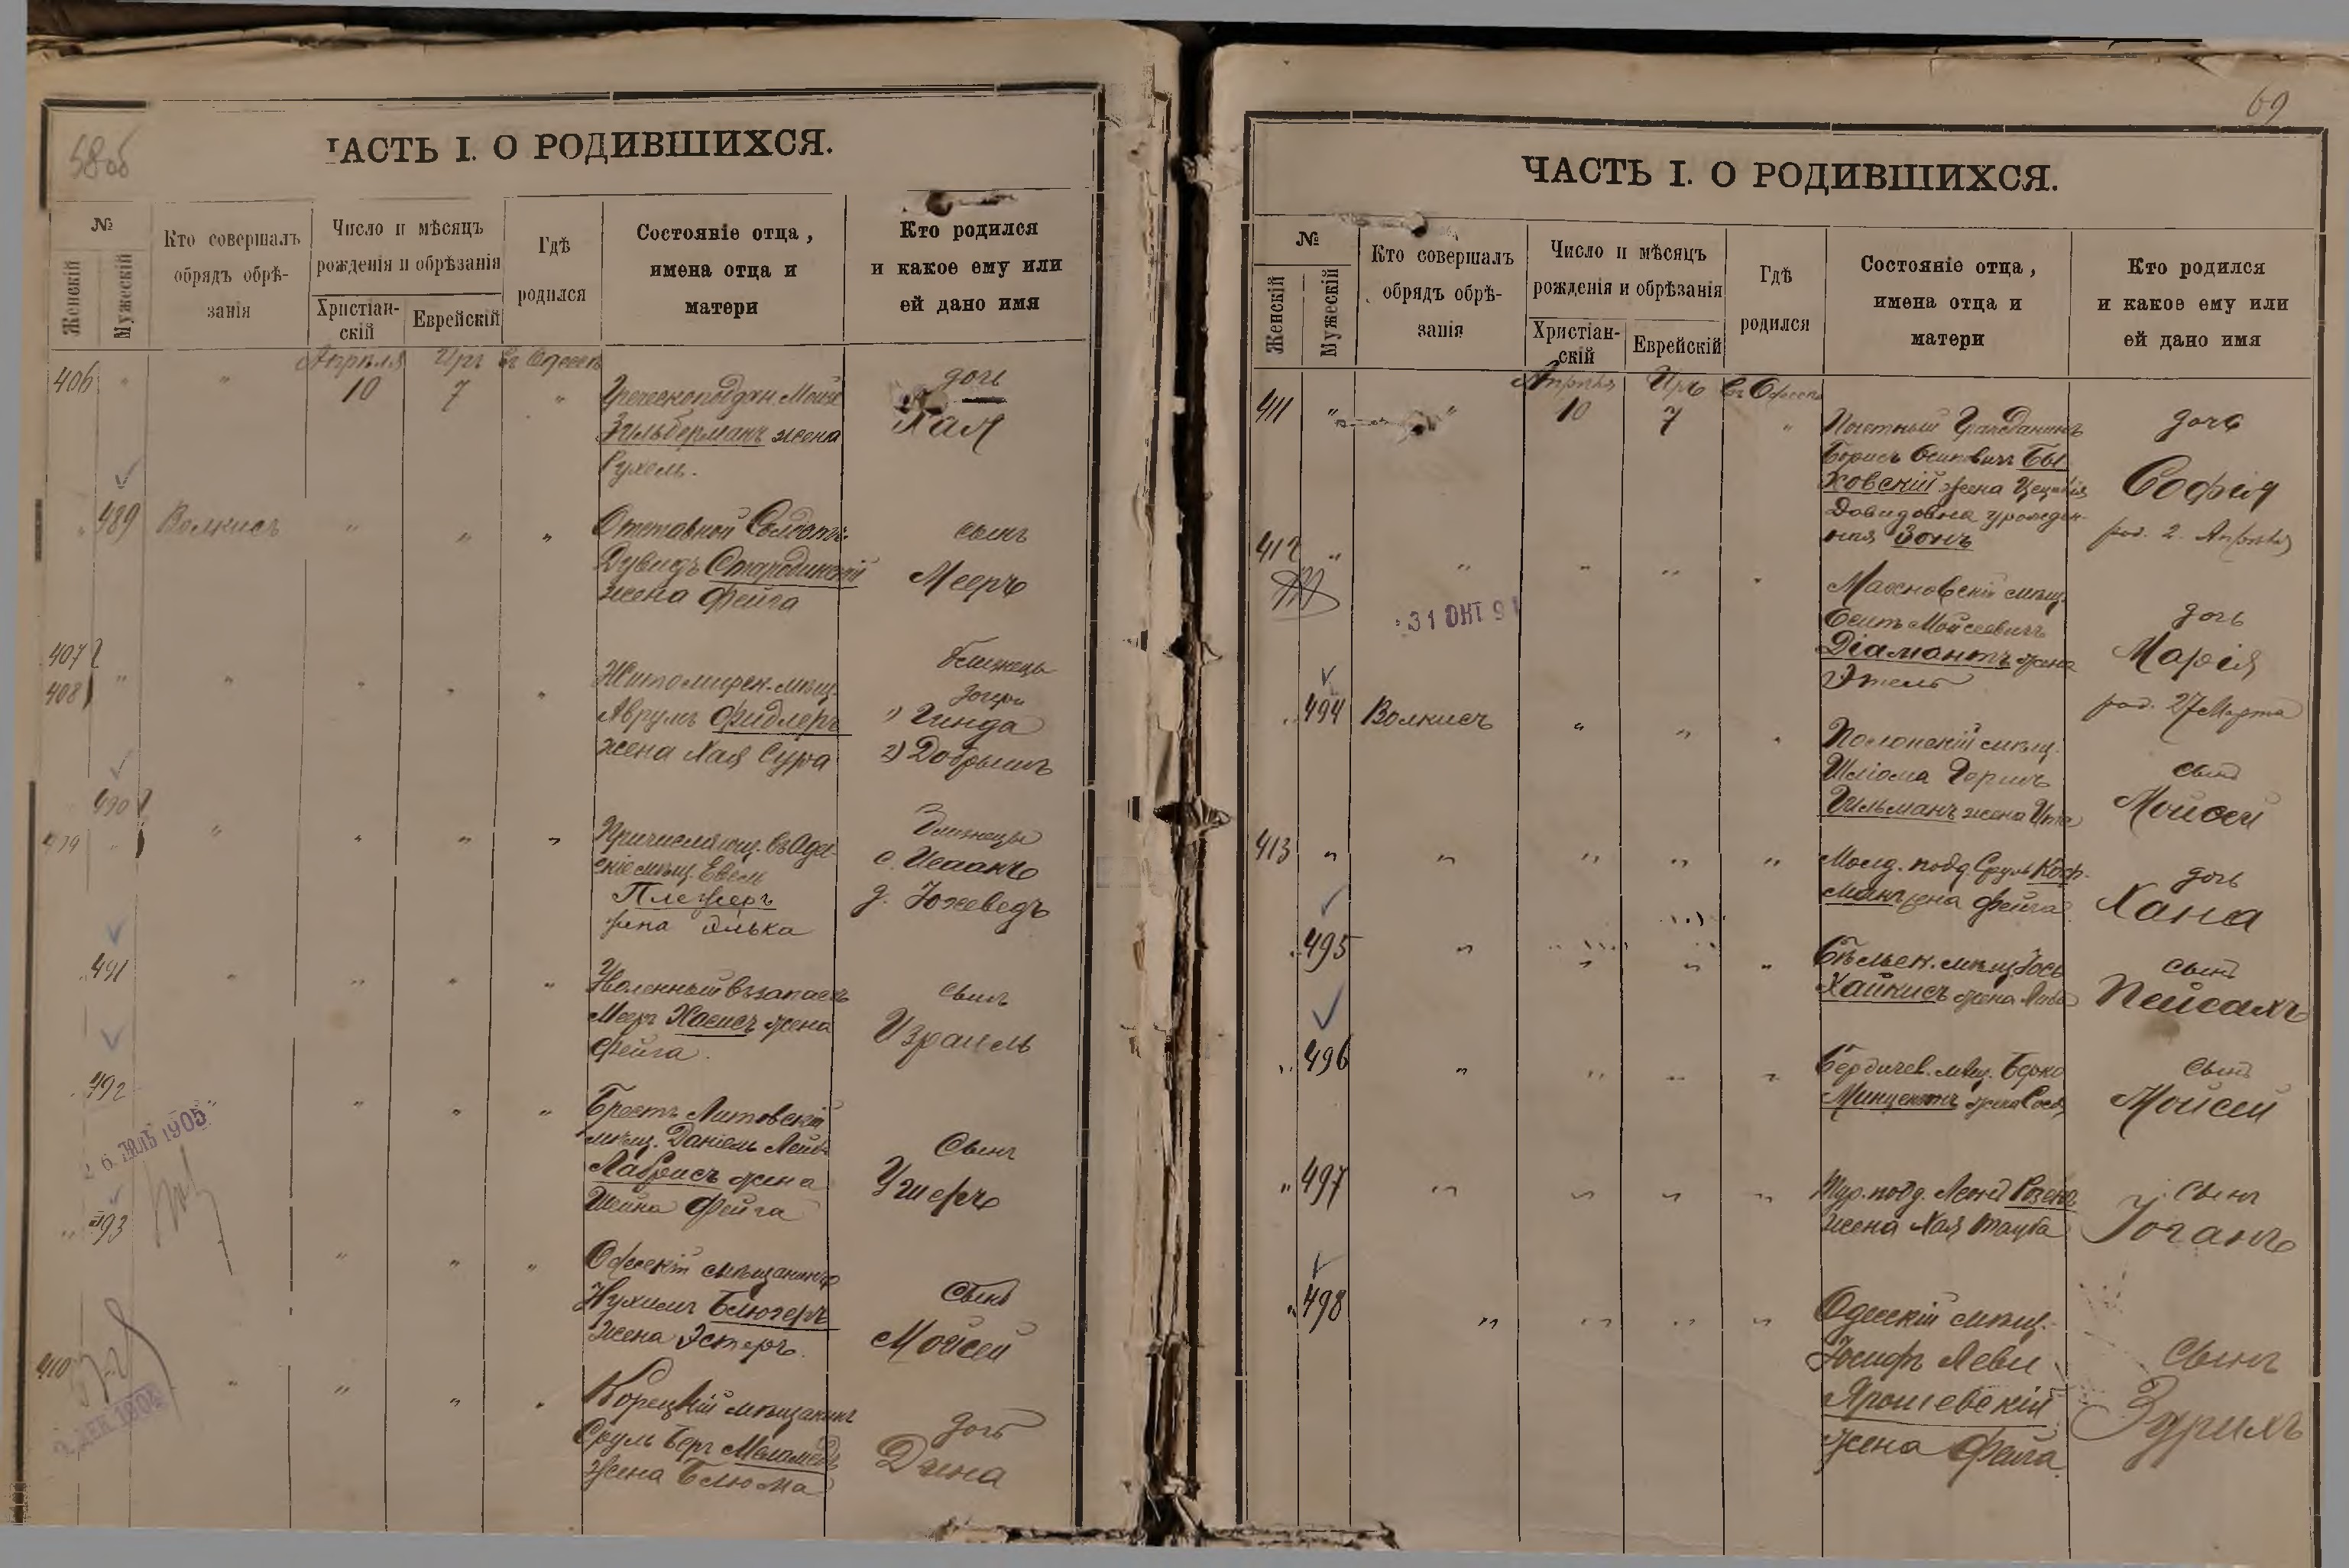 58об
ЧАСТЬ I. О РОДИВШИХСЯ.
№
Женскій
Мужескій
Кто совершалъ
обрядъ обрѣ-
занія
Число и мѣсяцъ
рожденія и обрѣзанія
Христіан-
скій
Еврейскій
Гдѣ
родился
Состояніе отца,
имена отца и
матери
Кто родился
и какое ему или
ей дано имя
Апрѣля Иръ въ Одессѣ
406 " " 10 7 "
Греческоподдан. Мойше
Зильберманъ жена
Рухель.
дочь
Хая
489 Волкисъ " " "
Отставной Солдатъ
Дувидъ Стародинскій
жена Фейга
сынъ
Мееръ
407
408 " " " " "
Житомирск. мѣщ.
Аврумъ Фидлеръ
жена Хая Сура
близнецы
дочери
1) Гинда
2) Добрышъ
490
" " " "
Причисляющ. въ Одес-
скіе мѣщ. Евель
Плецеръ
жена Элька
Близнецы
с. Исаакъ
д. Іохеведъ
491 " " " "
Уволенный въ запасъ
Мееръ Хасисъ жена
Фейга.
сынъ
Израиль
492 " " " "
Брестъ Литовскій
мѣщ. Даніель Лейб
Лабрисъ жена
Шейна Фейга
Сынъ
Ушеръ
26 1905
493 " " "
Одесскій мѣщанинъ
Нухимъ Блюгеръ
жена Эстеръ.
Сынъ
Мойсей
410 " " " "
Корецкій мѣщанинъ
Сруль Беръ Меламедъ
жена Блюма
дочь
Дина
ДЕК 1904
69
ЧАСТЬ I. О РОДИВШИХСЯ.
№
Женскій
Мужескій
Кто совершалъ
обрядъ обрѣ-
занія
Число и мѣсяцъ
рожденія и обрѣзанія
Христіан-
скій
Еврейскій
Гдѣ
родился
Состояніе отца,
имена отца и
матери
Кто родился
и какое ему или
ей дано имя
Апрѣля Иръ въ Одессѣ
411 " " 10 7 "
Почетный Гражданинъ
Борисъ Осиповичъ Бы
ховскій жена Цецилія
Давидовна урожден-
ная Зонъ
дочь
Софія
род. 2. Апрѣля
412 " " " " "
31 ОКТ 91
мѣщ.
Осипъ Мойсеевичъ
Діамантъ жена
Этель
дочь
Марія
род. 27 Марта
494 Волкисъ " " "
Полонскій мѣщ.
Шліома Гершъ
Гильманъ жена Ита
сынъ
Мойсей
413 " " " " "
Молд. подд. Сруль Коф-
манъ жена Фейга
дочь
Хана
495 " " " "
Бѣльск. мѣщ. Іось
Хайкисъ жена Либа
сынъ
Пейсахъ
496 " " " "
Бердичев. мѣщ. Берко
жена Сося
сынъ
Мойсей
497 " " " "
Тур. подд. Леонъ
жена Хая Тауба
Сынъ
Іоганъ
498 " " " "
Одесскій мѣщ.
Іосифъ Леви
Ярошевскій
жена Фейга.
Сынъ